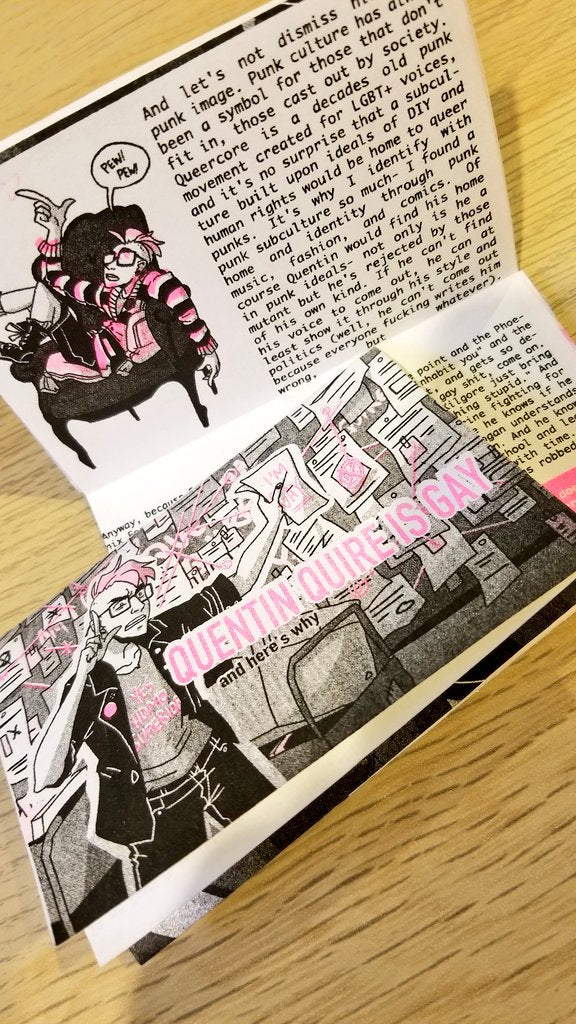 And let's not dismiss
punk image. Punk culture has
been a symbol for those that don't
fit in, those cast out by society.
Queercore is a decades old punk
movement created for LGBT+ voices,
and it's no surprise that a subcul-
ture built upon ideals of DIY and
human rights would be home to queer
punks. It's why I identify with
punk subculture so much- I found a
home and identity through punk
music, fashion, and comics. Of
course Quentin would find his home
in punk ideals- not only is he a
mutant but he's rejected by those
of his own kind. If he can't find
his voice to come out, he can at
least show it through his style and
politics (well, he can't come out
because everyone fucking writes him
wrong, but whatever).
PEW!
PEW!
Anyway, because
point and the Phoe-
nhabit you and the
and gets so de-
gay shit- come on.
Kilgore just bring
being stupid. And
ine fighting for
he knows if he
gan understands
. And he know
hool and lea
with time.
s robbed
I'M
QUENTIN QUIRE IS GAY
and here's why
YES
HOMO
SUPERIOR